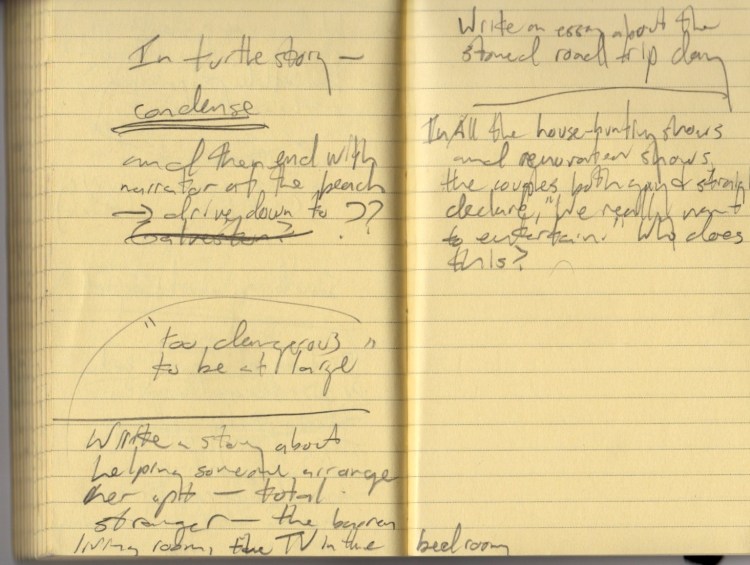 In turtle story —
condense
and then end with
narrator at the beach
→ drive down to ??
Galveston?
"too dangerous"
to be at large
Write a story about
helping someone arrange
her apt — total
stranger — the barren
living room, the TV in the bedroom
Write an essay about the
stoned road trip day
In All the house-hunting shows
and renovation shows,
the couples both gay & straight
declare, "We really want
to entertain." Who does
this?